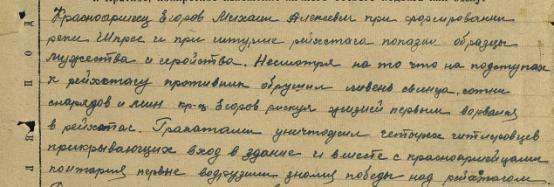 Красноармеец Егоров Михаил Алексеевич при форсировании
реки Шпрее и при штурме рейхстага показал образцы
мужества и геройства. Несмотря на то что на подступах
к рейхстагу противник обрушил ливень свинца, сотни
снарядов и мин кр-ц Егоров рискуя жизнью первым ворвался
в рейхстаг. Гранатами уничтожил четырех гитлеровцев
прикрывающих вход в здание и вместе с красноармейцами
первые водрузили знамя победы над рейхстагом